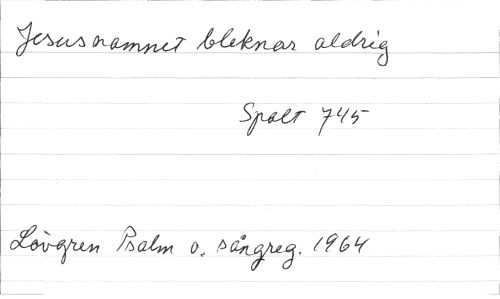 Jesusnamnet bleknar aldrig
Spalt 745
Lövgren Psalm o. sångreg. 1964